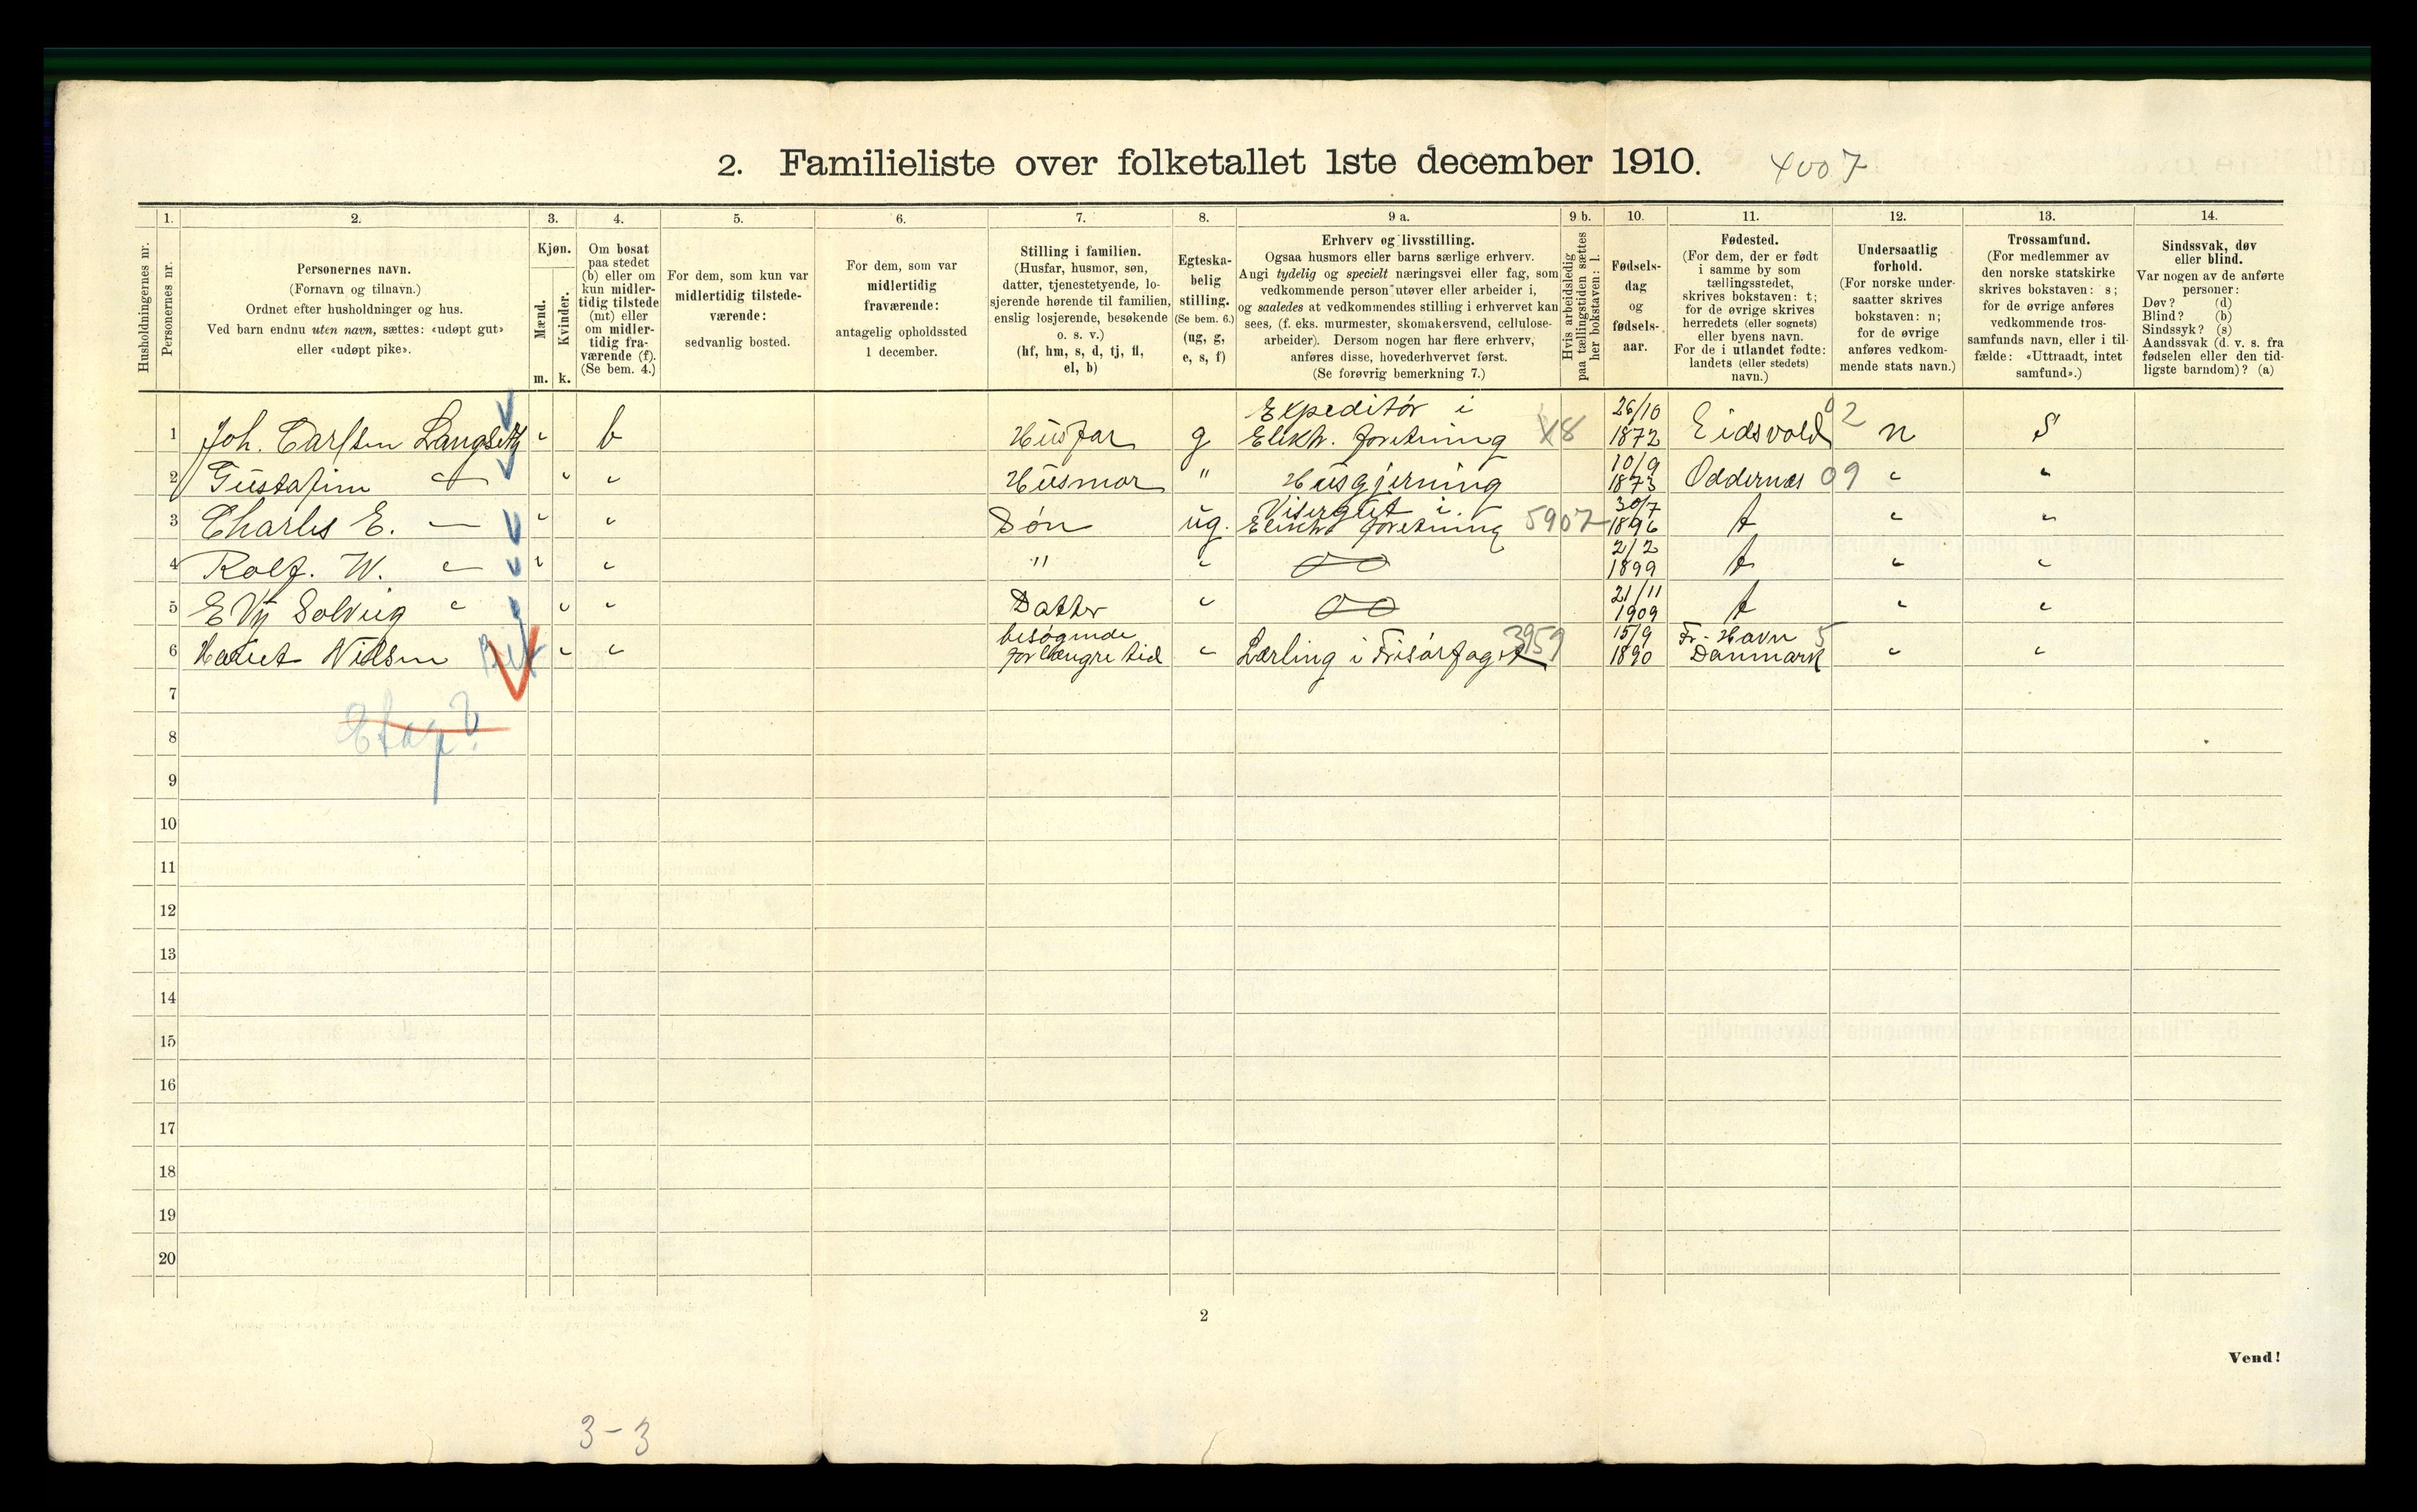 2. Familieliste over folketallet 1ste december 1910. 4007
1. 2. 3. 4. 5. 6. 7. 8. 9 a. 9 b. 10. 11. 12. 13. 14.
Husholdningernes nr.
Personernes nr.
Personernes navn.
(Fornavn og tilnavn.)
Ordnet efter husholdninger og hus.
Ved barn endnu uten navn, sættes: «udøpt gut»
eller «udøpt pike».
Kjøn.
Mænd.
Kvinder.
m. k.
Om bosat
paa stedet
(b) eller om
kun midler-
tidig tilstede
(mt) eller
om midler-
tidig fra-
værende (f).
(Se bem. 4.)
For dem, som kun var
midlertidig tilstede-
værende:
sedvanlig bosted.
For dem, som var
midlertidig
fraværende:
antagelig opholdssted
1 december.
Stilling i familien.
(Husfar, husmor, søn,
datter, tjenestetyende, lo-
sjerende hørende til familien,
enslig losjerende, besøkende
o. s. v.)
(hf, hm, s, d, tj, fl,
el, b)
Egteska-
belig
stilling.
(Se bem. 6.)
(ug, g,
e, s, f)
Erhverv og livsstilling.
Ogsaa husmors eller barns særlige erhverv.
Angi tydelig og specielt næringsvei eller fag, som
vedkommende person utøver eller arbeider i,
og saaledes at vedkommendes stilling i erhvervet kan
sees, (f. eks. murmester, skomakersvend, cellulose-
arbeider). Dersom nogen har flere erhverv,
anføres disse, hovederhvervet først.
(Se forøvrig bemerkning 7.)
Hvis arbeidsledig
paa tællingstiden sættes
her bokstaven: l.
Fødsels-
dag
og
fødsels-
aar.
Fødested.
(For dem, der er født
i samme by som
tællingsstedet,
skrives bokstaven: t;
for de øvrige skrives
herredets (eller sognets)
eller byens navn.
For de i utlandet fødte:
landets (eller stedets)
navn.)
Undersaatlig
forhold.
(For norske under-
saatter skrives
bokstaven: n;
for de øvrige
anføres vedkom-
mende stats navn.)
Trossamfund.
(For medlemmer av
den norske statskirke
skrives bokstaven: s;
for de øvrige anføres
vedkommende tros-
samfunds navn, eller i til-
fælde: «Uttraadt, intet
samfund».)
Sindssvak, døv
eller blind.
Var nogen av de anførte
personer:
Døv? (d)
Blind? (b)
Sindssyk? (s)
Aandssvak (d. v. s. fra
fødselen eller den tid-
ligste barndom)? (a)
Expeditör i 26/10
1 Joh. Carlsen Langseth b Husfar g Elektr. forretning 1872 Eidsvold 02 n S
10/9
2 Gustafine Husmor " Husgjerning 1873 Oddernes 09
Visergut i 30/7
3 Charles E. — Søn ug. Elektr. forretning 5907 1896 t
2/2
4 Rolf. W. " 1899 t
21/11
5 Solveig Datter 1909 t
besøgende 15/9 Fr. Havn 5
6 Nielsen for længre tid Lærling i Frisørfaget 3959 1890 Danmark
7
8 Etage?
9
10
11
12
13
14
15
16
17
18
19
20
2
Vend!
3-3